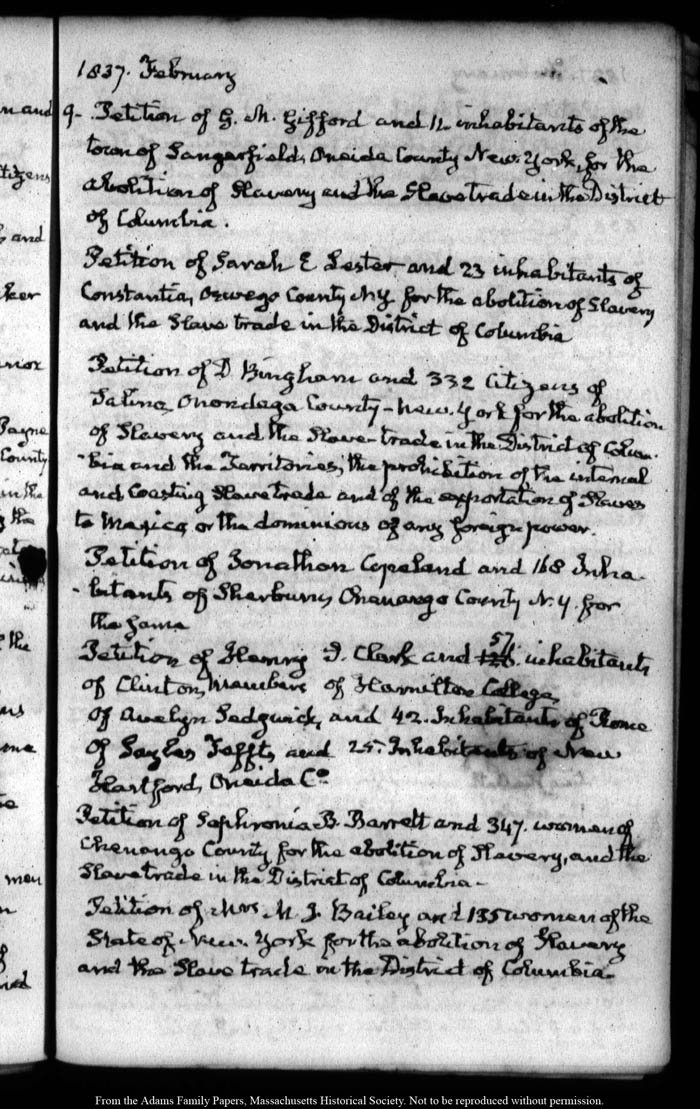 1837. February
9- Petition of G. M. Gifford and 11 inhabitants of the
town of Sangerfield, Oneida County New-York, for the
abolition of Slavery and the Slave trade in the District
of Columbia.
Petition of Sarah E Lester and 23 inhabitants of
Constantia, Oswego County N.Y. for the abolition of Slavery
and the Slave trade in the District of Columbia
Petition of D Bingham and 332 Citizens of
Salina, Onondaga County - New-York for the abolition
of Slavery and the Slave-trade in the District of Colum-
-bia and the Territories, the prohibition of the internal
and Coasting Slave trade and of the exportation of Slaves
to Mexico or the dominions of any foreign power.
Petition of Jonathan Copeland and 168 Inha-
-bitants of Sherburne, Chenango County N.Y. for
the Same
Petition of Henry T. Clark and 57 inhabitants
of Clinton, Members of Hamilton College
of Avelyn Sedgwick, and 42. Inhabitants of Rome
of Sayles Tefft, and 25. Inhabitants of New
Hartford, Oneida Co
Petition of Sophronia B. Barrett and 347. women of
Chenango County for the abolition of Slavery, and the
Slave trade in the District of Columbia-
Petition of Mrs. M. J. Bailey and 135 women of the
State of New-York for the abolition of Slavery
and the Slave trade in the District of Columbia-
n and
tizens
and
ker
nior
Payne
County
in the
the
the
men
From the Adams Family Papers, Massachusetts Historical Society. Not to be reproduced without permission.